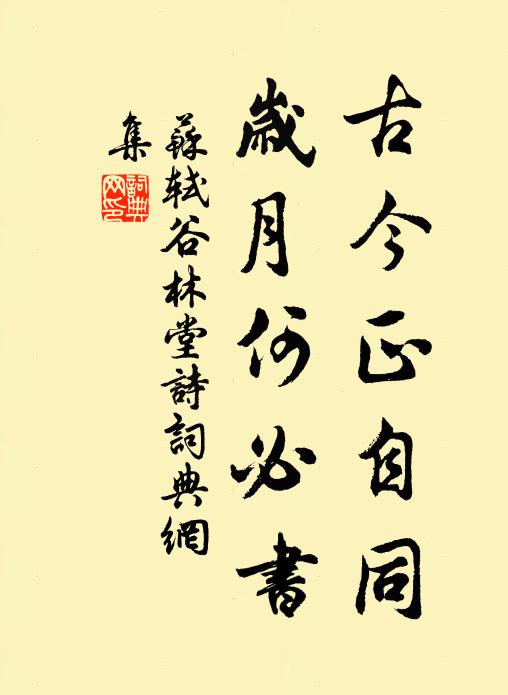 古今正自同
歲月何必書
蘇軾谷林堂詩詞典網
集
詞典
网印